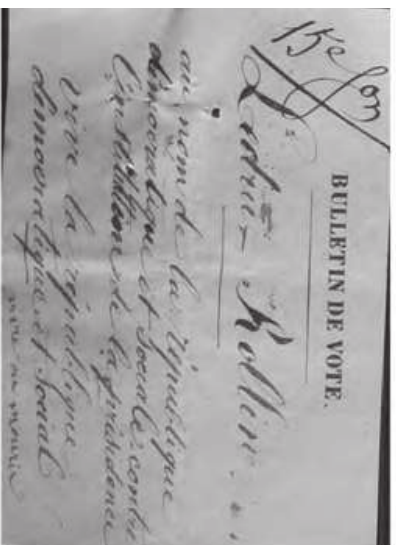 BULLETIN DE VOTE.
Ledru-Rollin
au nom de la république
démocratique et Sociale contre
l'institution de la présidence
vive la république
démocratique et Social